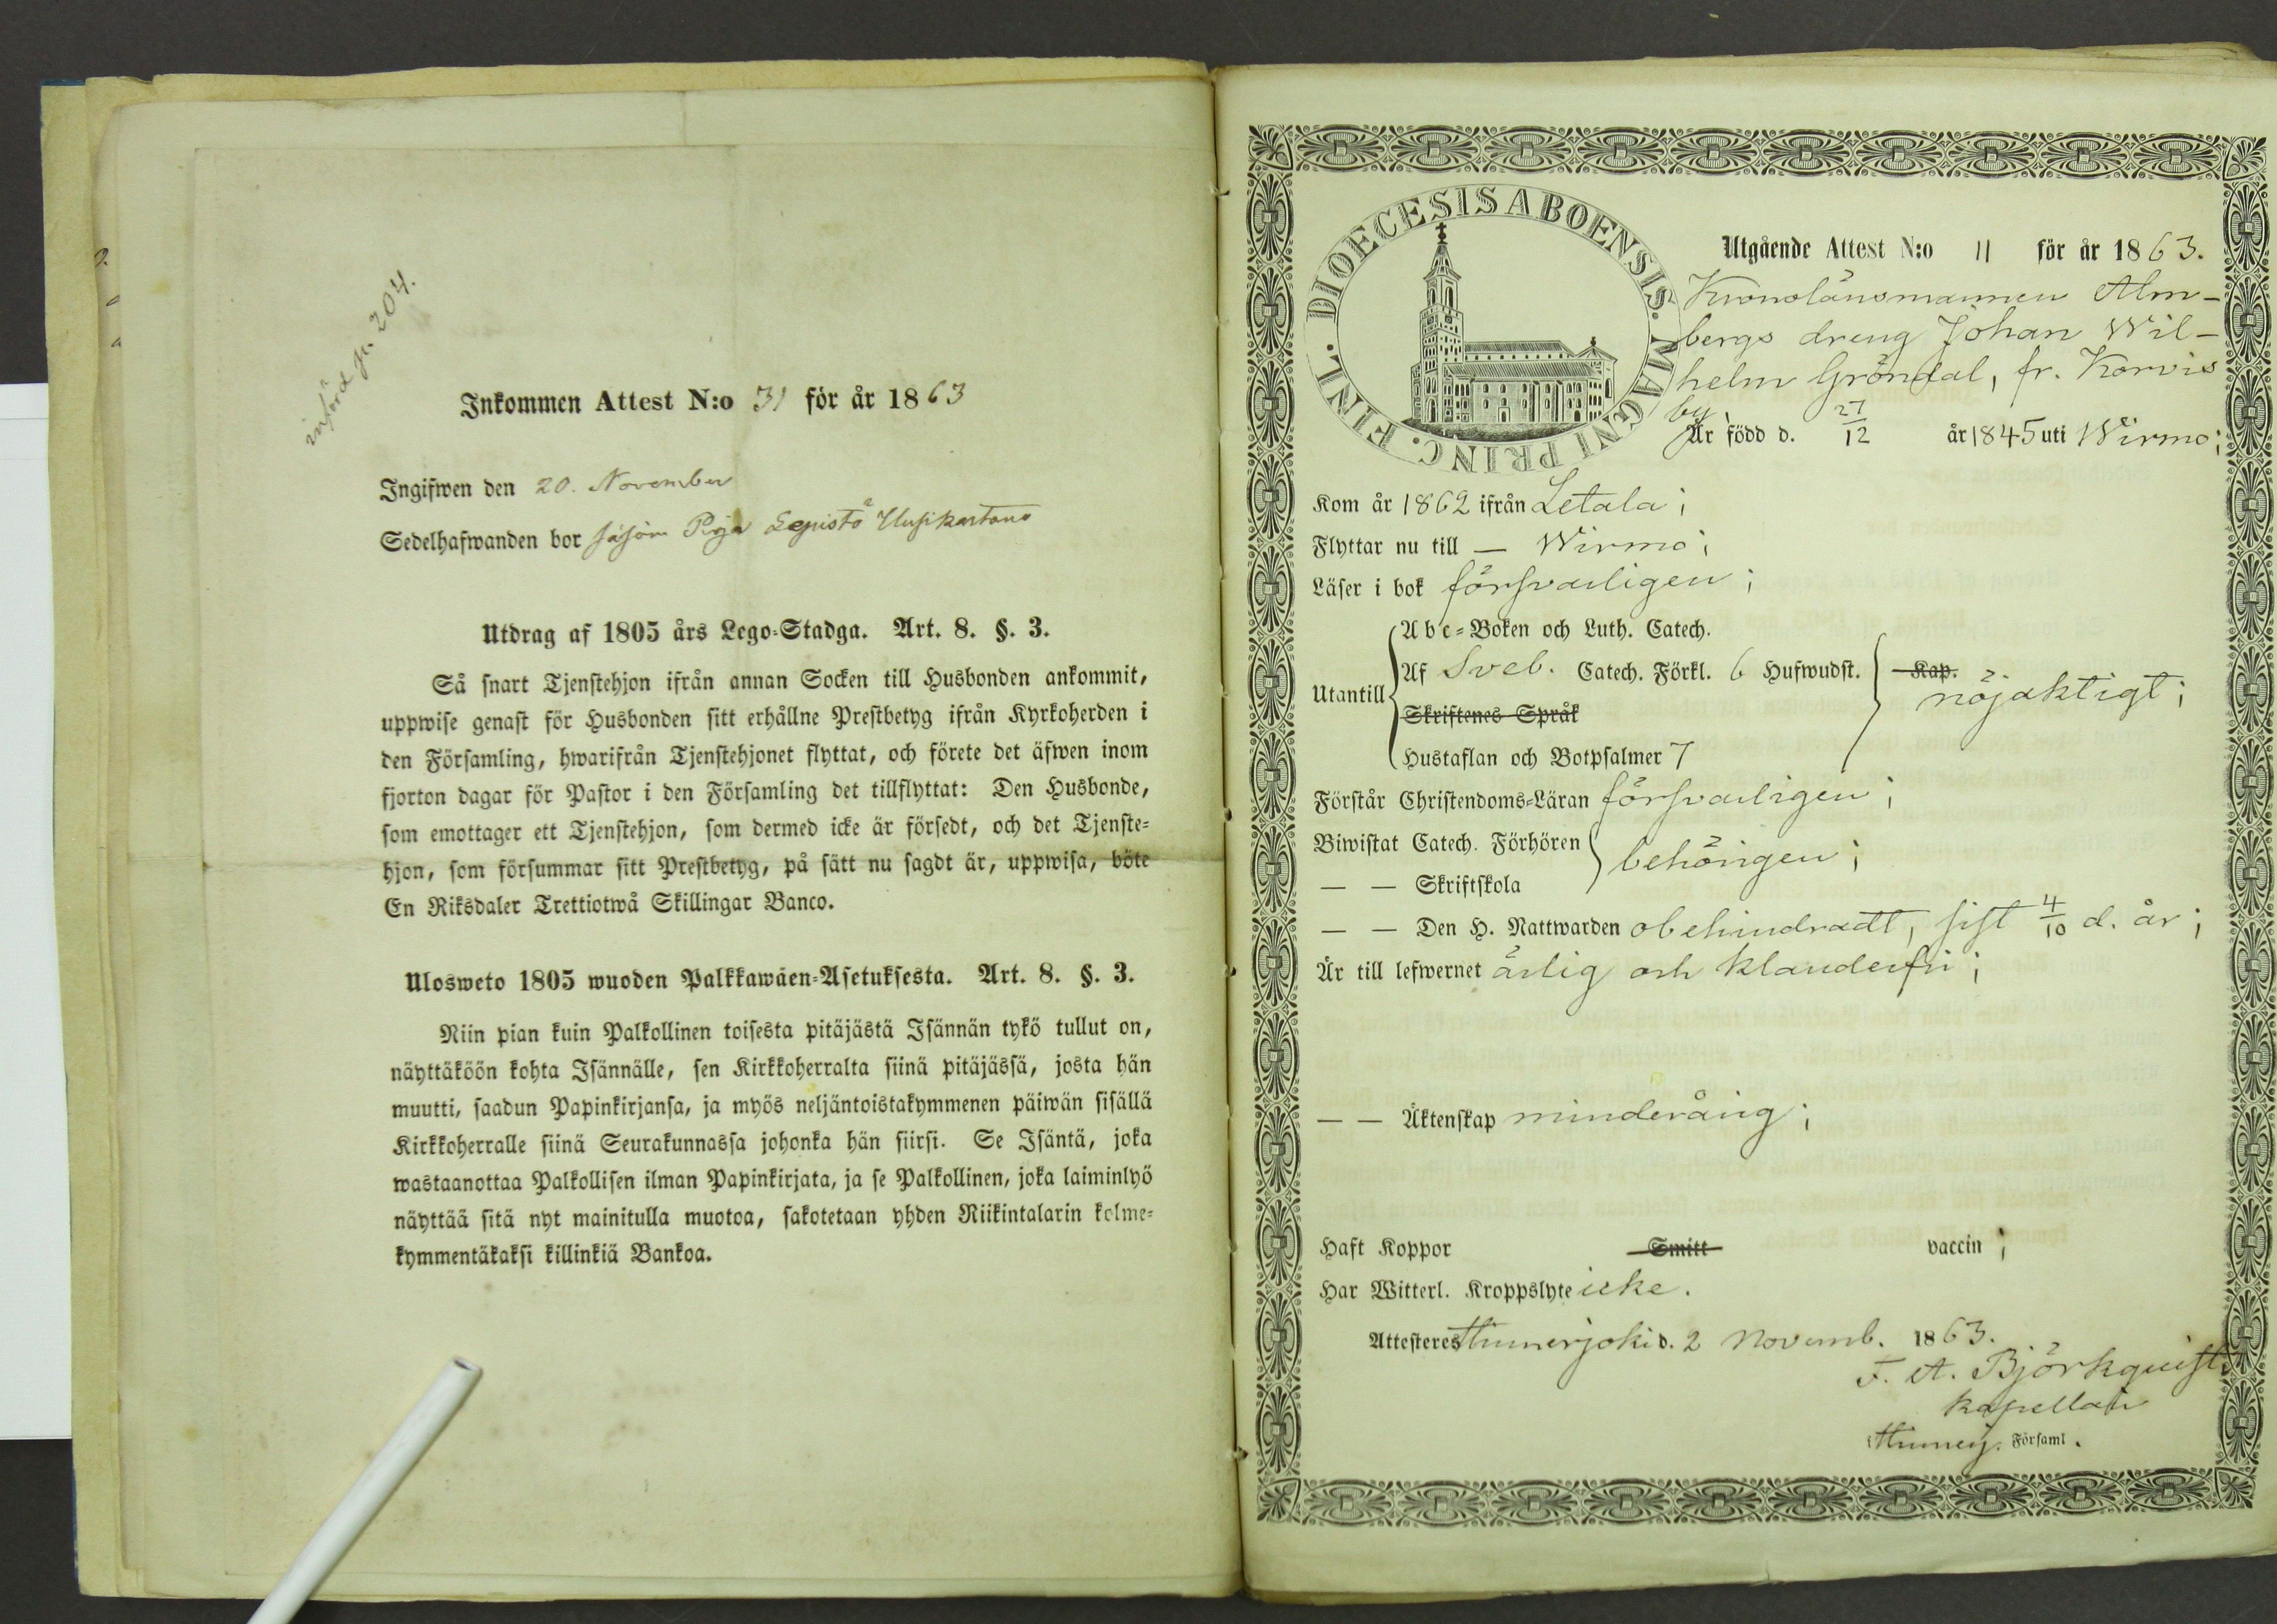 införd p. 204.
Inkommen Attest N:o 31 för år 1863
Ingifwen den 20. November
Sedelhafwanden bor såsom Piga Lepistö Uusikartano
Utdrag af 1805 års Lego-Stadga. Art. 8. §. 3.
Så snart Tjenstehjon ifrån annan Socken till Husbonden ankommit,
uppwise genast för Husbonden sitt erhållne Prestbetyg ifrån Kyrkoherden i
den Församling, hwarifrån Tjenstehjonet flyttat, och förete det äfwen inom
fjorton dagar för Pastor i den Församling det tillflyttat: Den Husbonde,
som emottager ett Tjenstehjon, som dermed icke är försedt, och det Tjenste-
hjon, som försummar sitt Prestbetyg, på sätt nu sagdt är, uppwisa, böte
En Riksdaler Trettiotwå Skillingar Banco.
Ulosweto 1805 wuoden Palkkawäen-Asetuksesta. Art. 8. §. 3.
Niin pian kuin Palkollinen toisesta pitäjästä Isännän tykö tullut on,
näyttäköön kohta Isännälle, sen Kirkkoherralta siinä pitäjässä, josta hän
muutti, saadun Papinkirjansa, ja myös neljäntoistakymmenen päiwän sisällä
Kirkkoherralle siinä Seurakunnassa johonka hän siirsi. Se Isäntä, joka
wastaanottaa Palkollisen ilman Papinkirjata, ja se Palkollinen, joka laiminlyö
näyttää sitä nyt mainitulla muotoa, sakotetaan yhden Riikintalarin kolme-
kymmentäkaksi killinkiä Bankoa.
DIOECESIS ABOENSIS. MAGNI PRINC. FINL.
Utgående Attest N:o 11 för år 1863.
Kronolänsmannen Alm-
bergs dreng Johan Wil-
helm Gröndal, fr. Korvis
by
Är född d. 27/12 år 1845 uti Wirmo;
Kom år 1862 ifrån Letala;
Flyttar nu till — Wirmo;
Läser i bok försvarligen;
Abc-Boken och Luth. Catech.
Utantill Af Sveb. Catech. Förkl. 6 Hufwudst. Kap.
nöjaktigt;
Skriftenes Språk
Hustaflan och Botpsalmer 7
Förstår Christendoms-Läran försvarligen;
Biwistat Catech. Förhören behörigen;
— — Skriftskola
— — Den H. Nattwarden obehindradt, sist 4/10 d. år;
Är till lefwernet ärlig och klanderfri;
— — Äktenskap minderårig;
Haft Koppor Smitt vaccin;
Har Witterl. Kroppslyte icke.
Attesteres Hinnerjoki d. 2 Novemb. 1863.
F. A. Björkquist.
kapellan
i Hinnerj. Församl.